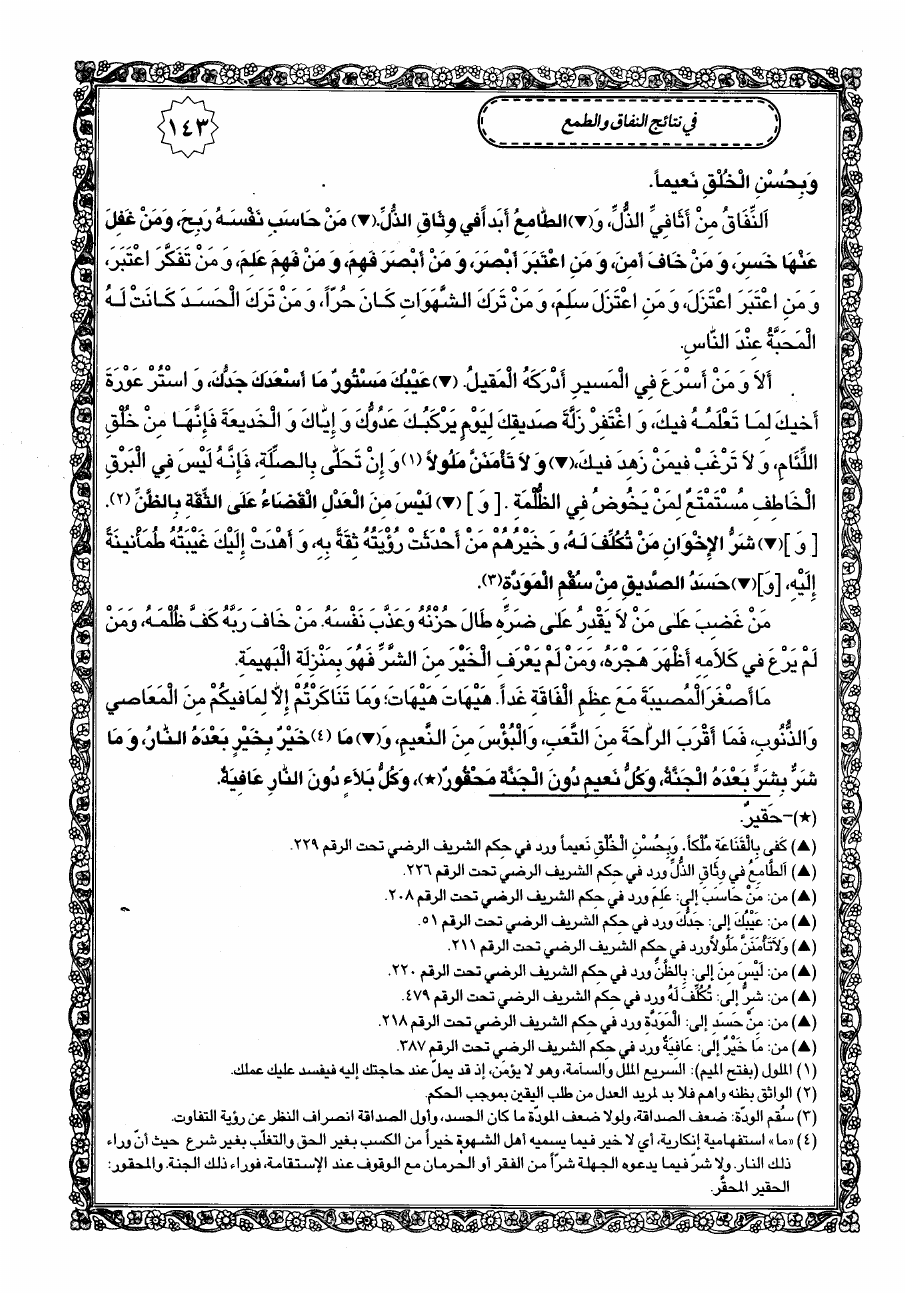 في نتائج النفاق والطمع
١٤٣
وَبِحُسْنِ الْخُلْقِ نَعيماً.
اَلنِّفَاقُ مِنْ أَثَافِيِّ الذُّلِّ، وَ(▼)الطامِعُ أَبَداً في وِثَاقِ الذُّلِّ.(▼) مَنْ حَاسَبَ نَفْسَهُ رَبِحَ، وَمَنْ غَفِلَ
عَنْهَا خَسِرَ، وَ مَنْ خَافَ أَمِنَ، وَ مَنِ اعْتَبَرَ أَبْصَرَ، وَ مَنْ أَبْصَرَ فَهِمَ، وَ مَنْ فَهِمَ عَلِمَ، وَ مَنْ تَفَكَّرَ اعْتَبَرَ،
وَ مَنِ اعْتَبَرَ اعْتَزَلَ، وَ مَنِ اعْتَزَلَ سَلِمَ، وَ مَنْ تَرَكَ الشَّهَوَاتِ كَانَ حُرّاً، وَ مَنْ تَرَكَ الْحَسَدَ كَانَتْ لَهُ
الْمَحَبَّةُ عِنْدَ النَّاسِ.
أَلاَ وَ مَنْ أَسْرَعَ فِي الْمَسيرِ أَدْرَكَهُ الْمَقيلُ. (▼)عَيْبُكَ مَسْتُورٌ مَا أَسْعَدَكَ جَدُّكَ، وَ اسْتُرْ عَوْرَةَ
أَخيكَ لِمَا تَعْلَمُهُ فيكَ، وَ اغْتَفِرْ زَلَّةَ صَديقِكَ لِيَوْمٍ يَرْكَبُكَ عَدُوُّكَ وَ إِيَّاكَ وَ الْخَديعَةَ فَإِنَّهَا مِنْ خُلْقِ
اللِّئَامِ، وَ لاَ تَرْغَبْ فيمَنْ زَهِدَ فيكَ،(▼)وَ لاَ تَأْمَنَنَّ مَلُولاً (١)وَ إِنْ تَحَلّٰى بِالصِّلَةِ، فَإِنَّهُ لَيْسَ فِي الْبَرْقِ
الْخَاطِفِ مُسْتَمْتَعٌ لِمَنْ يَخُوضُ فِي الظُّلْمَةِ . [ وَ ] (▼) لَيْسَ مِنَ الْعَدْلِ الْقَضَاءُ عَلَى الثِّقَةِ بِالظَّنِّ (٢).
[ وَ ](▼) شَرُّ الإِخْوَانِ مَنْ تُكُلِّفَ لَهُ، وَ خَيْرُهُمْ مَنْ أَحْدَثَتْ رُؤْيَتُهُ ثِقَةً بِهِ، وَ أَهْدَتْ إِلَيْكَ غَيْبَتُهُ طُمَأْنينَةً
إِلَيْهِ، [وَ](▼)حَسَدُ الصَّديقِ مِنْ سُقْمِ الْمَوَدَّةِ (٣).
مَنْ غَضِبَ عَلى مَنْ لاَ يَقْدِرُ عَلى ضَرِّهِ طَالَ حُزْنُهُ وَعَذَّبَ نَفْسَهُ. مَنْ خَافَ رَبَّهُ كَفَّ ظُلْمَهُ، وَمَنْ
لَمْ يَرْعَ في كَلاَمِهِ أَظْهَرَ هَجْرَهُ، وَمَنْ لَمْ يَعْرَفِ الْخَيْرَ مِنَ الشَّرِّ فَهُوَ بِمَنْزِلَةِ الْبَهيمَةِ.
مَا أَصْغَرَ الْمُصيبَةَ مَعَ عِظَمِ الْفَاقَةِ غَداً. هَيْهَاتَ هَيْهَاتَ؛ وَمَا تَنَاكَرْتُمْ إِلاَّ لِمَا فيكُمْ مِنَ الْمَعَاصي
وَالذُّنُوبِ، فَمَا أَقْرَبَ الرَّاحَةَ مِنَ التَّعَبِ، وَالْبُؤْسَ مِنَ النَّعيمِ، وَ(▼) مَا (٤)خَيْرٌ بِخَيْرٍ بَعْدَهُ النَّارُ، وَ مَا
شَرٌّ بِشَرٍّ بَعْدَهُ الْجَنَّةُ، وَكُلُّ نَعيمٍ دُونَ الْجَنَّةِ مَحْقُورٌ(★)، وَكُلُّ بَلاَءٍ دُونَ النَّارِ عَافِيَةٌ.
(★)-حقيرٌ.
(▲) كَفى بِالْقَنَاعَةِ مُلْكاً، وَبِحُسْنِ الْخُلْقِ نَعيماً ورد في حكم الشريف الرضي تحت الرقم ٢٢٩.
(▲) اَلطَّامِعُ في وِثَاقِ الذُّلِّ ورد في حكم الشريف الرضي تحت الرقم ٢٢٦.
(▲) من: مَنْ حَاسَبَ إلى: عَلِمَ ورد في حكم الشريف الرضي تحت الرقم ٢٠٨.
(▲) من: عَيْبُكَ إلى: جَدُّكَ ورد في حكم الشريف الرضي تحت الرقم ٥١.
(▲) وَلاَتَأْمَنَنَّ مَلُولاً ورد في حكم الشريف الرضي تحت الرقم ٢١١.
(▲) من: لَيْسَ مِنَ إلى: بِالظَّنِّ ورد في حكم الشريف الرضي تحت الرقم ٢٢٠.
(▲) من: شرُّ إلى: تُكُلِّفَ لَهُ ورد في حكم الشريف الرضي تحت الرقم ٤٧٩.
(▲) من: مِنْ حَسَدِ إلى: الْمَوَدَّةِ ورد في حكم الشريف الرضي تحت الرقم ٢١٨.
(▲) من: مَا خَيْرٌ إلى: عَافِيَةٌ ورد في حكم الشريف الرضي تحت الرقم ٣٨٧.
(١) الملول (بفتح الميم): السريع الملل والسآمة، وهو لا يؤمن، إذ قد يملّ عند حاجتك إليه فيفسد عليك عملك.
(٢) الواثق بظنه واهم فلا بد لمريد العدل من طلب اليقين بموجب الحكم.
(٣) سقم الودّة: ضعف الصداقة، ولولا ضعف المودّة ما كان الحسد، وأول الصداقة انصراف النظر عن رؤية التفاوت.
(٤) «ما» استفهامية إنكارية، أي لا خير فيما يسميه أهل الشهوة خيراً من الكسب بغير الحق والتغلّب بغير شرع حيث أنّ وراء
ذلك النار. ولا شرّ فيما يدعوه الجهلة شرّاً من الفقر أو الحرمان مع الوقوف عند الإستقامة، فوراء ذلك الجنة. والمحقور:
الحقير المحقَّر.